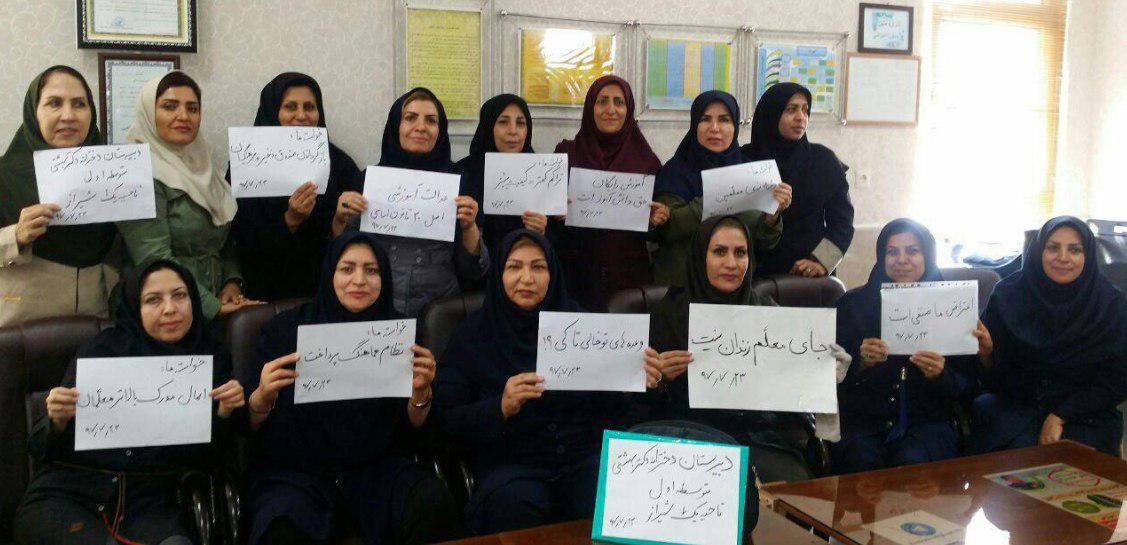 دبیرستان دخترانه دکتر بهشتی
متوسطه اول
ناحیه یک شیراز
۹۷٫۷٫۲۳
خواسته ما:
بازگرداندن صندوق ذخیره فرهنگیان
۹۷٫۷٫۲۳
عدالت آموزشی
اصل ۳۰ قانون اساسی
۹۷٫۷٫۲۳
خواسته ما:
تراکم کمتر، کیفیت بیشتر
۹۷٫۷٫۲۳
آموزش رایگان
حق دانش آموز است
۹۷٫۷٫۲۳
معلمین
۹۷٫۷٫۲۳
خواسته ما:
اعمال مدرک بالاتر معلمان
۹۷٫۷٫۲۳
خواسته ما:
نظام هماهنگ پرداخت
۹۷٫۷٫۲۳
وعده های توخالی تا کی ؟!
۹۷٫۷٫۲۳
جای معلم زندان نیست
۹۷٫۷٫۲۳
اعتراض ما صنفی است
۹۷٫۷٫۲۳
دبیرستان دخترانه دکتر بهشتی
متوسطه اول
ناحیه یک شیراز
۹۷٫۷٫۲۳